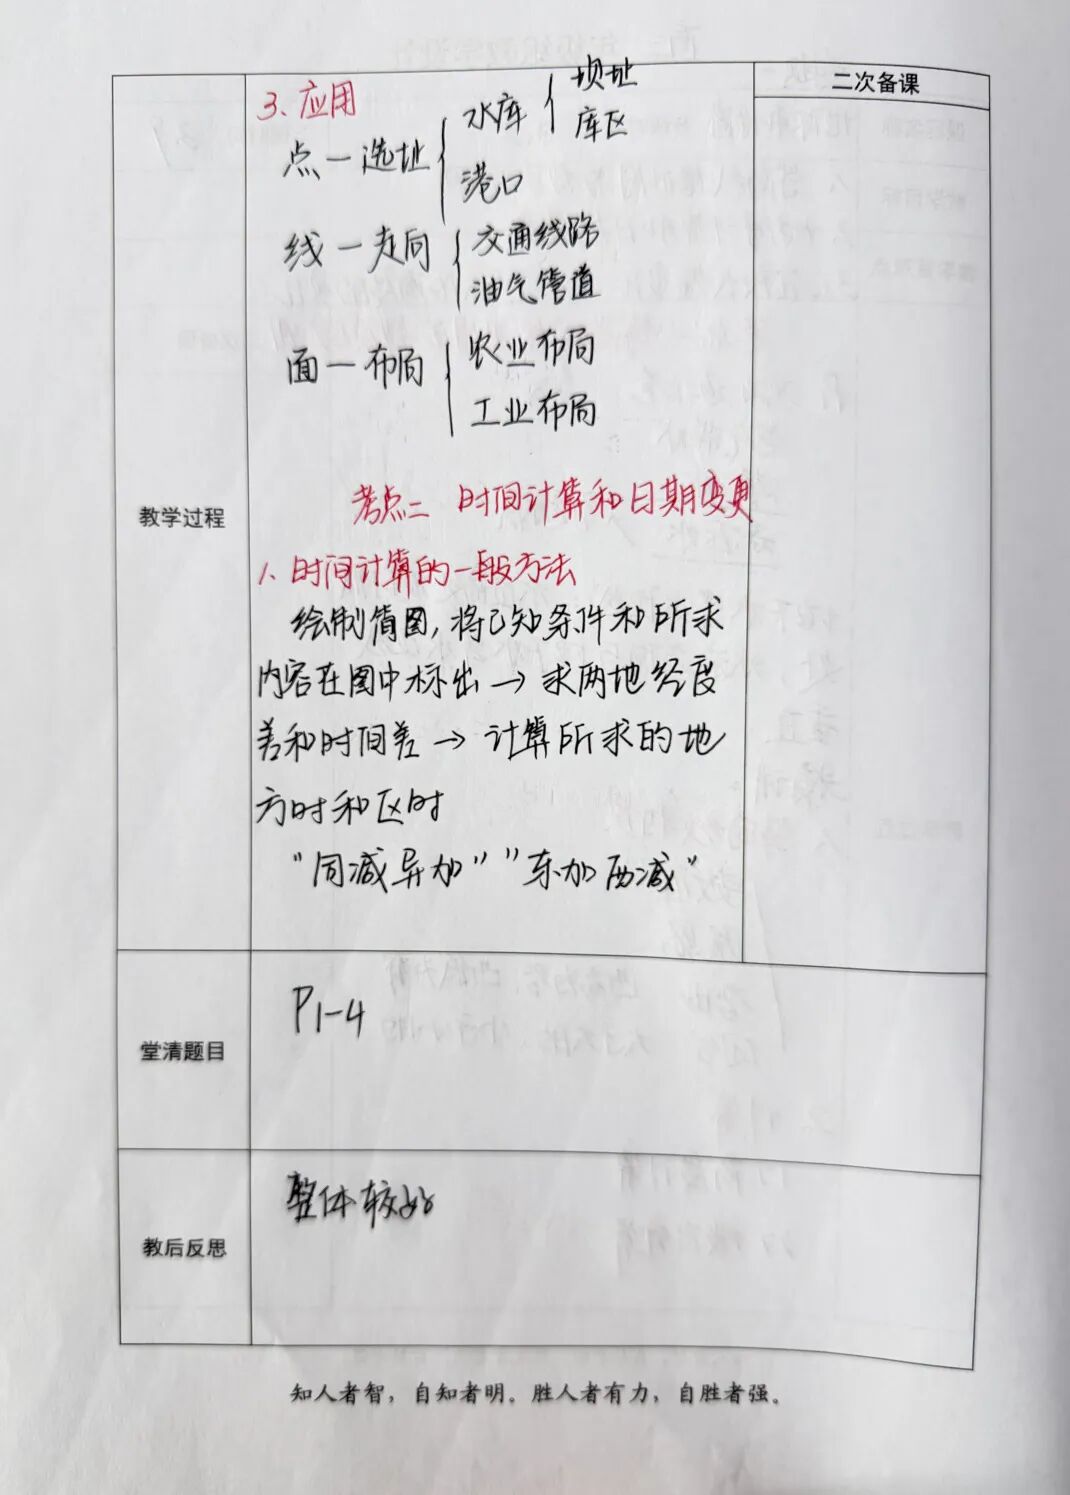 二次备课
3、应用
点—选址
水库
坝址
库区
港口
线—走向
交通线路
油气管道
面—布局
农业布局
工业布局
考点二 时间计算和日期变更
教学过程
1、时间计算的一般方法
绘制简图,将已知条件和所求
内容在图中标出→求两地经度
差和时间差→计算所求的地
方时和区时
"同减异加" "东加西减"
堂清题目
P1-4
教后反思
整体较好
知人者智，自知者明。胜人者有力，自胜者强。